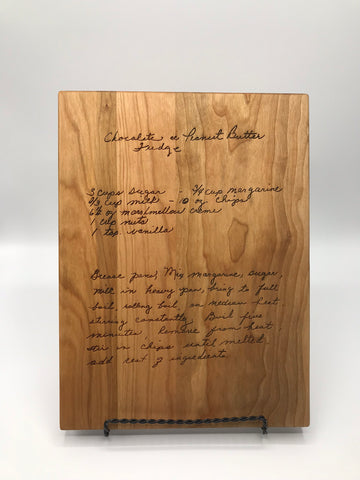 Chocolate or Peanut Butter
Fudge
3 cups sugar - 3/4 cup margarine
2/3 cup milk - 10 oz chips
6 1/2 oz marshmellow creme
1 cup nuts
1 tsp. vanilla
Grease pan; Mix margarine, sugar,
milk in heavy pan, bring to full
boil, rolling boil, on medium heat,
stirring constantly. Boil five
minutes. Remove from heat,
stir in chips until melted.
add rest of ingredients.